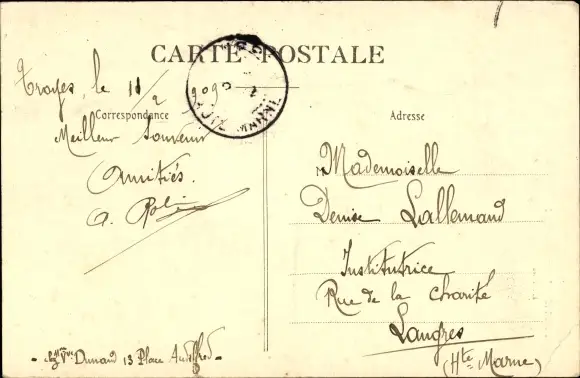 CARTE POSTALE
Troyes le 11/2 1909
Correspondance
Meilleur Souvenir
Amitiés
A.
Adresse
Mademoiselle
Denise Lallemand
Institutrice
Rue de la Charité
Langres
(Hte Marne)
Vve Dunand 13 Place Audiffred
HAUTE MARNE